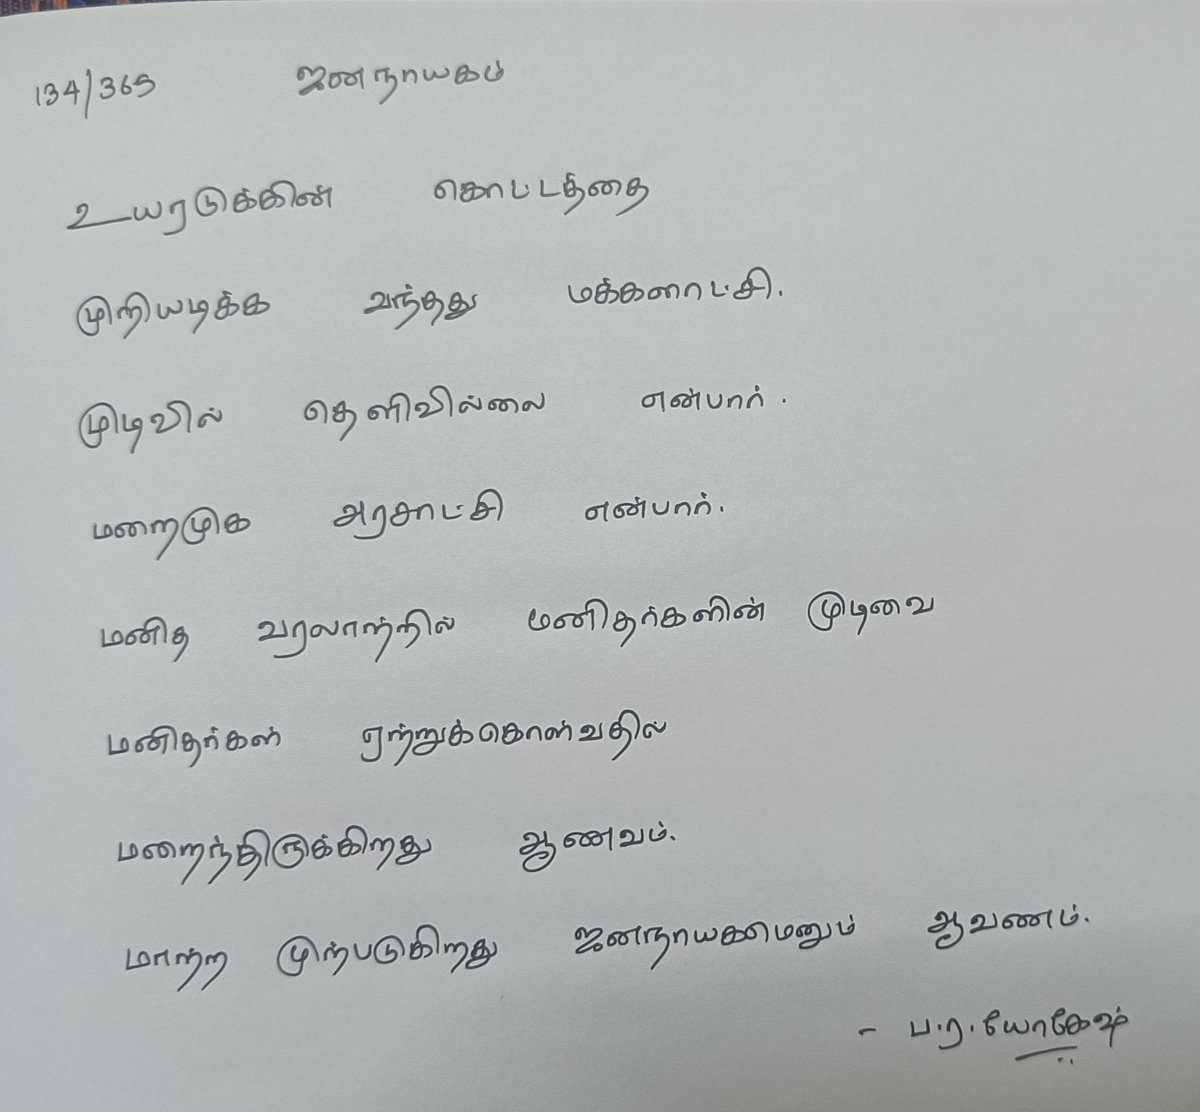 134/365 ஜனநாயகம்
உயரடுக்கின் கொட்டத்தை
முறியடிக்க வந்தது மக்களாட்சி.
முடிவில் தெளிவில்லை என்பார்.
மறைமுக அரசாட்சி என்பார்.
மனித வரலாற்றில் மனிதர்களின் முடிவை
மனிதர்கள் ஏற்றுக்கொள்வதில்
மறைந்திருக்கிறது ஆணவம்.
மாற்ற முற்படுகிறது ஜனநாயகமெனும் ஆவணம்.
- ப.ர.யோகேஷ்